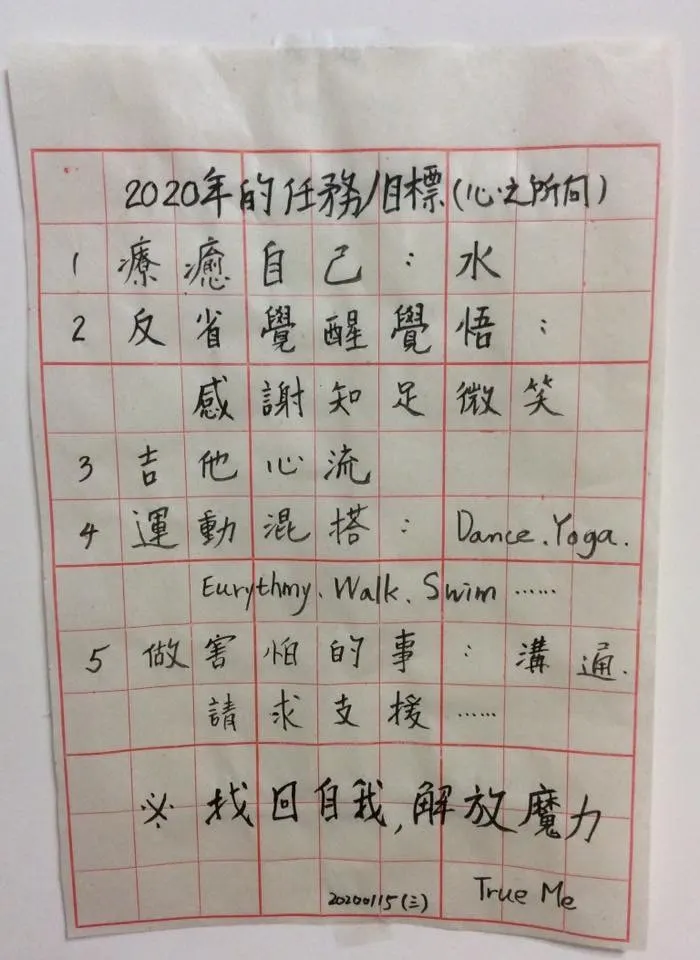 2020年的任務/目標(心之所向)
1 療癒自己：水
2 反省覺醒覺悟：
感謝知足微笑
3 吉他心流
4 運動混搭：Dance.Yoga.
Eurythmy.Walk.Swim……
5 做害怕的事：溝通.
請求支援……
※找回自我,解放魔力
20200115(三) True Me